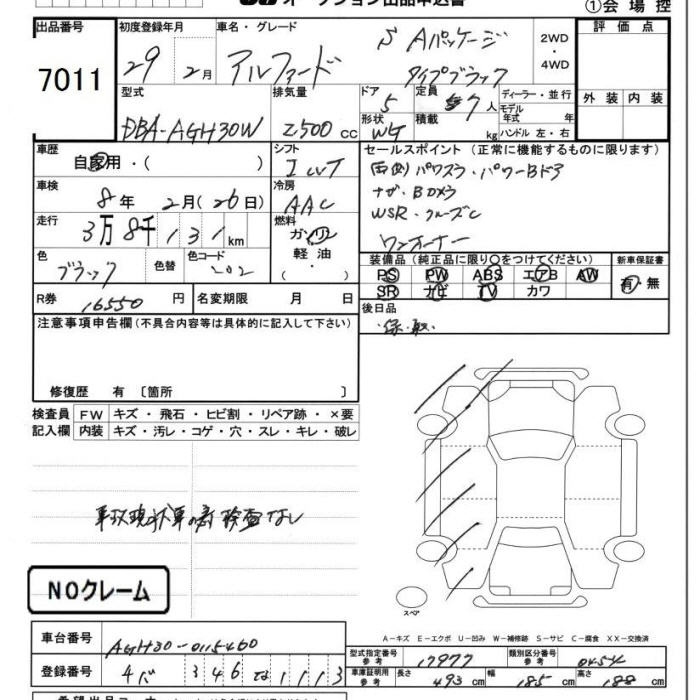 オークション出品申込書 ①会場控
出品番号 初度登録年月 車名・グレード S Aパッケージ 2WD 評価点
7011 29 2月 アルファード タイプブラック ・4WD
型式 排気量 ドア 5 定員 7人 ディーラー・並行 外装 内装
モデル
DBA-AGH30W 2500cc 形状 WG 積載 kg 年式 年
ハンドル 左・右
車歴 自家用・( ) シフト セールスポイント (正常に機能するものに限ります)
車検 8年 2月(26日) 冷房 AAC 両側パワスラ・パワーBドア
ナビ・Bカメラ
走行 3万8千131km 燃料 ガソリン WSR・クルーズC
軽油 ワンオーナー
色 ブラック 色替 色コード 202 ・( ) 装備品 (純正品に限り○をつけてください) 新車保証書
PS PW ABS エアB AW 有・無
SR ナビ TV カワ
R券 16550円 名変期限 月 日 後日品
注意事項申告欄(不具合内容等は具体的に記入して下さい) ・録.取.
修復歴 有 〔箇所 〕
検査員 FW キズ・飛石・ヒビ割・リペア跡・×要
記入欄 内装 キズ・汚レ・コゲ・穴・スレ・キレ・破レ
事故現状車の為検査なし
NOクレーム
スペア
A-キズ E-エクボ U-凹み W-補修跡 S-サビ C-腐食 XX-交換済
車台番号 AGH30-0115460
型式指定番号 参考 17977 類別区分番号 参考 0454
登録番号 346 1113 車庫証明用 参考 長さ 493cm 幅 185cm 高さ 188cm